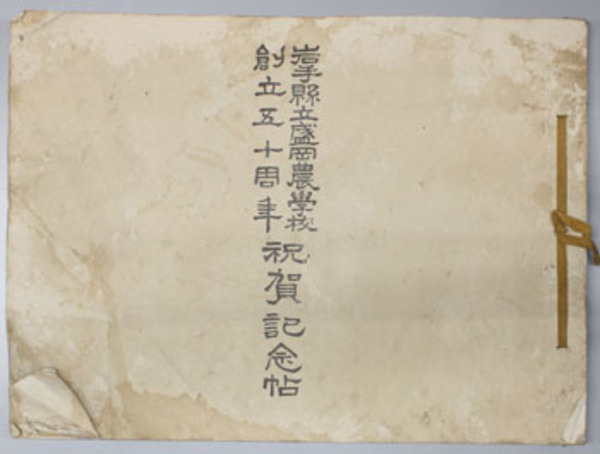 岩手縣立盛岡農學校
創立五十周年
祝賀記念帖